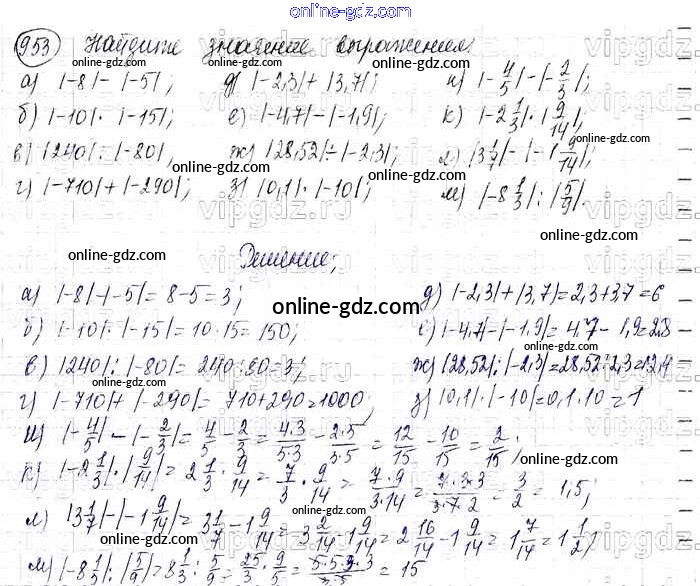 online-gdz.com
953 Найдите значение выражения:
а) |-8|-|-5|; д) |-2,3|+|3,7|; и) |-4/5|-|-2/3|;
б) |-10|·|-15|; е) |-4,7|-|-1,9|; к) |-2 1/3|·|9/14|;
в) |240|:|-80|; ж) |28,52|:|-2,3|; л) |3 1/7|-|-1 9/14|;
г) |-710|+|-290|; з) |0,1|·|-10|; м) |-8 1/3|:|5/9|.
Решение;
а) |-8|-|-5|= 8-5=3; д) |-2,3|+|3,7|=2,3+3,7=6
б) |-10|·|-15|= 10·15=150; е) |-4,7|-|-1,9|= 4,7-1,9=2,8
в) |240|:|-80|= 240:80=3; ж) |28,52|:|-2,3|=28,52:2,3=12,4
г) |-710|+|-290|= 710+290=1000; з) |0,1|·|-10|=0,1·10=1
и) |-4/5|-|-2/3|= 4/5-2/3= 4·3/5·3-2·5/3·5= 12/15-10/15= 2/15;
к) |-2 1/3|·|9/14|= 2 1/3·9/14= 7/3·9/14= 7·9/3·14= 7·3·3/3·7·2= 3/2= 1,5;
л) |3 1/7|-|-1 9/14|= 3 1/7-1 9/14= 3 2/14-1 9/14= 2 16/14-1 9/14= 1 7/14= 1 1/2;
м) |-8 1/3|:|5/9|= 8 1/3:5/9= 25/3·9/5= 5·5·3·3/3·5= 15